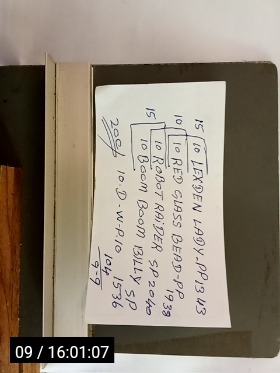 15 10 LEXDEN LADY.PP1343
10 10 RED GLASS BEAD-PP 1938
10 ROBOT RAIDER SP2040
15 10 BOOM BOOM BILLY SP 1536
200/- 10.D.W.P.10
104
9-9
09 / 16:01:07